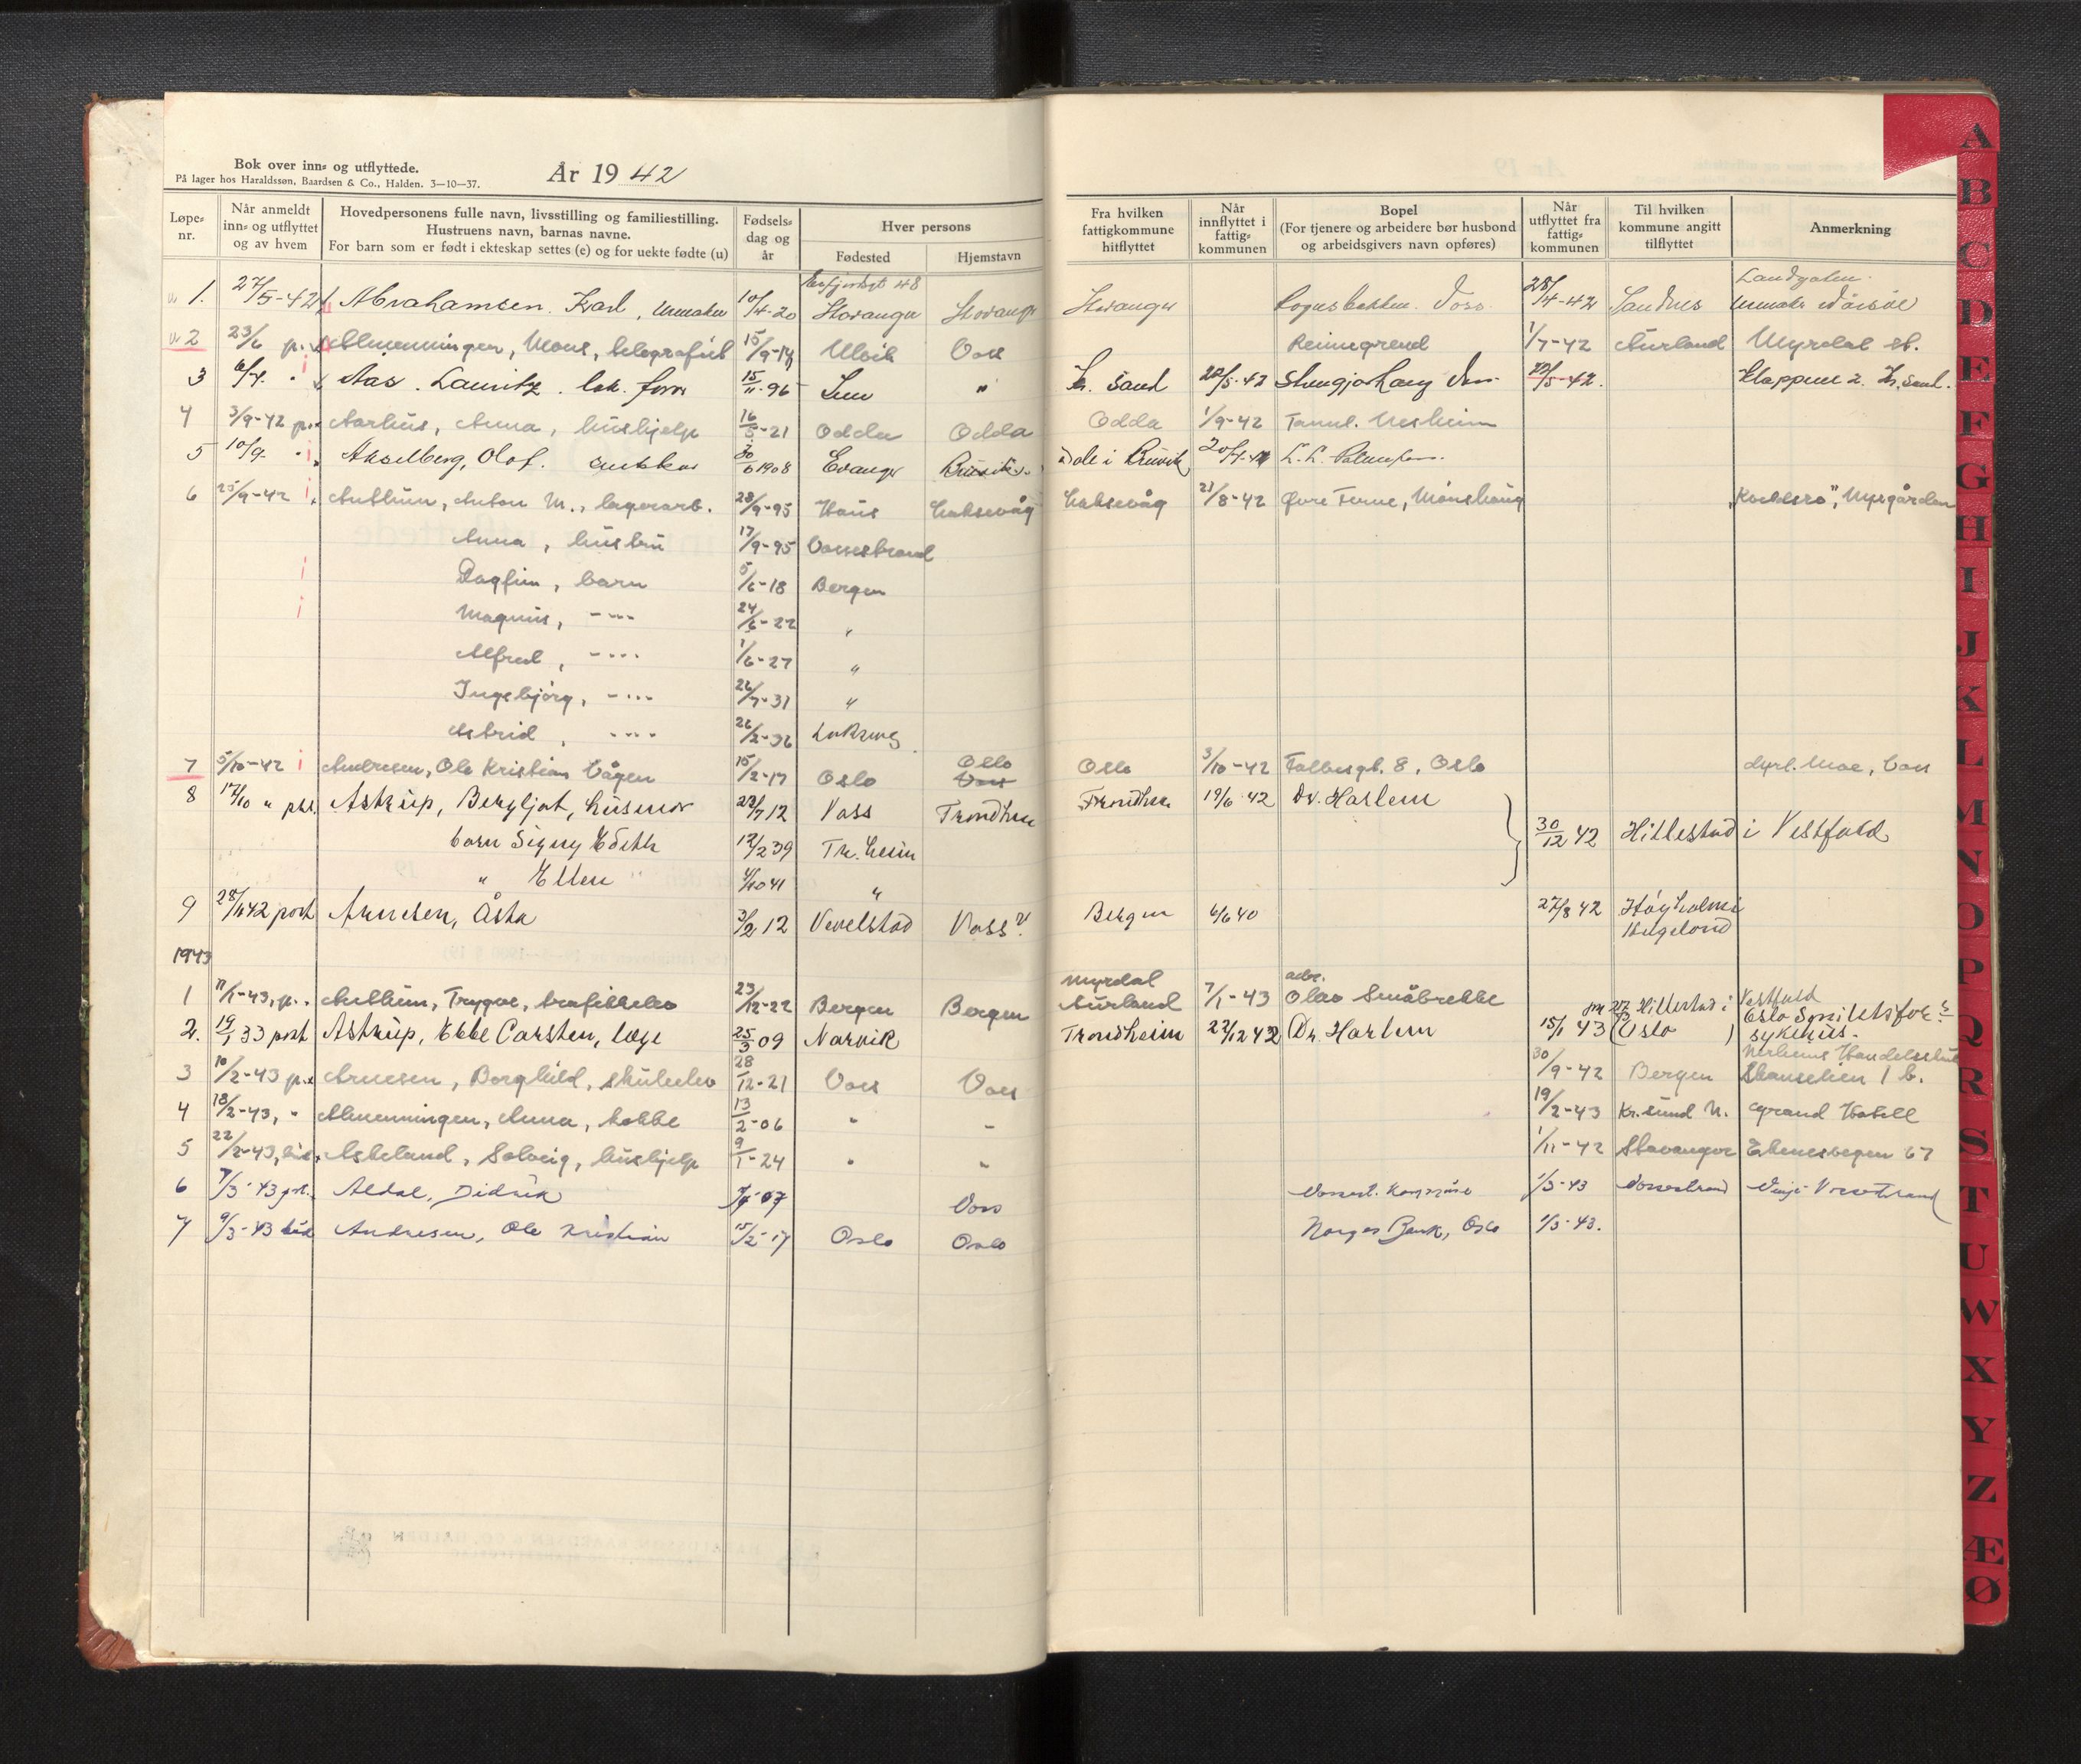 Bok over inn- og utflyttede.
På lager hos Haraldssøn, Baardsen & Co., Halden. 3—10—37.
År 1942
Løpe-nr.
Når anmeldt inn- og utflyttet og av hvem
Hovedpersonens fulle navn, livsstilling og familiestilling.
Hustruens navn, barnas navne.
For barn som er født i ekteskap settes (e) og for uekte fødte (u)
Fødsels-dag og år
Hver persons
Fødested
Hjemstavn
Fra hvilken fattigkommune hitflyttet
Når innflyttet i fattig-kommunen
Bopel
(For tjenere og arbeidere bør husbond og arbeidsgivers navn opføres)
Når utflyttet fra fattig-kommunen
Til hvilken kommune angitt tilflyttet
Anmerkning
1. 27/5-42 Abrahamsen. Karl, Urmaker 10/4-20 Stavanger Stavanger Stavanger Voss 28/4-42 Sandnes Urmaker
2 23/6 p. Almenningen, Mons, telegrafist 15/9-14 Ulvik Voss Reimegrend 1/7-42 Aurland Myrdal st.
3 Aas. Lauritz. lok. 15/11-96 " Kr. sand 22/5-42 Voss 22/5-42. Kleppene 2. Kr. Sand.
4 3/9-42 p. Aarhus, Anna, hushjelp 16/5-21 Odda Odda Odda 1/9-42 Tannl. Ulsheim
5 10/9 " Akselberg, Olof. 30/6 1908 Evanger Bruvik Dale i Bruvik
6 25/9-42 Anthun, Anton M., lagerarb. 28/9-95 Haus Laksevåg Laksevåg 21/8-42 Øvre Ferne, Mønshaug
Anna, hustru 17/9-95 Vossestrand
Dagfinn, barn 5/6-18 Bergen
Magnus, -"- 24/6-22 "
Alfred, -"- 1/6-27 "
Ingebjørg, -"- 26/7-31 "
Astrid, -"- 26/2-36 Laksevåg
7 5/10-42 Andresen, Ole Kristian Vågen 15/2-17 Oslo Oslo Voss Oslo 3/10-42 Falbesgt. 8, Oslo dyrl. Moe, Voss
8 17/10 " Astrup, Bergljot, husmor 23/7 12 Voss Trondheim Trondheim 19/6 42 Dr. Harlem
barn Signy Edith 12/2 39 Tr. heim 30/12 42 Hillestad i Vestfold
" Ellen 4/10 41 "
9 28/11 42 post Arnesen, Åsta 3/2 12 Vevelstad Voss? Bergen 6/6 40 27/8 42 Høyholmi Helgeland
1943
1 11/1-43, p. Anthun, Trygve, trafikkelev 23/12-22 Bergen Bergen Myrdal Aurland 7/1-43 adr. Olav Småbrekke
2. 19/1 33 post Astrup, Ebbe Carsten, læge 25/3 09 Narvik Trondheim 22/12 42 Dr. Harlem 15/1 43 (Oslo) Hillestad i Vestfold sykehus.
3 10/2-43 p. Arnesen, Borghild, skuleelev 28/12-21 Voss Voss 30/9-42 Bergen Handelsskule Skanselien 1 b.
4 18/2-43, " Almenningen, Anna, kokke 13/2-06 " " 19/2-43 Kr. sund N. Grand Hotell
5 22/2-43, Askeland, Solveig, hushjelp 9/1-24 " " 1/11-42 Stavanger Ebenesvegen 67
6 7/3-43 Aldal, Didrik Voss Vossest. Kommune 1/3-43 Vossestrand Vinje Vossestrand
7 9/3-43 Andresen, Ole Kristian 15/2-17 Oslo Oslo Norges Bank, Oslo 1/3-43.
A
B
C
D
E
F
G
H
I
J
K
L
M
N
O
P
Q
R
S
T
U
W
X
Y
Z
Æ
Ø